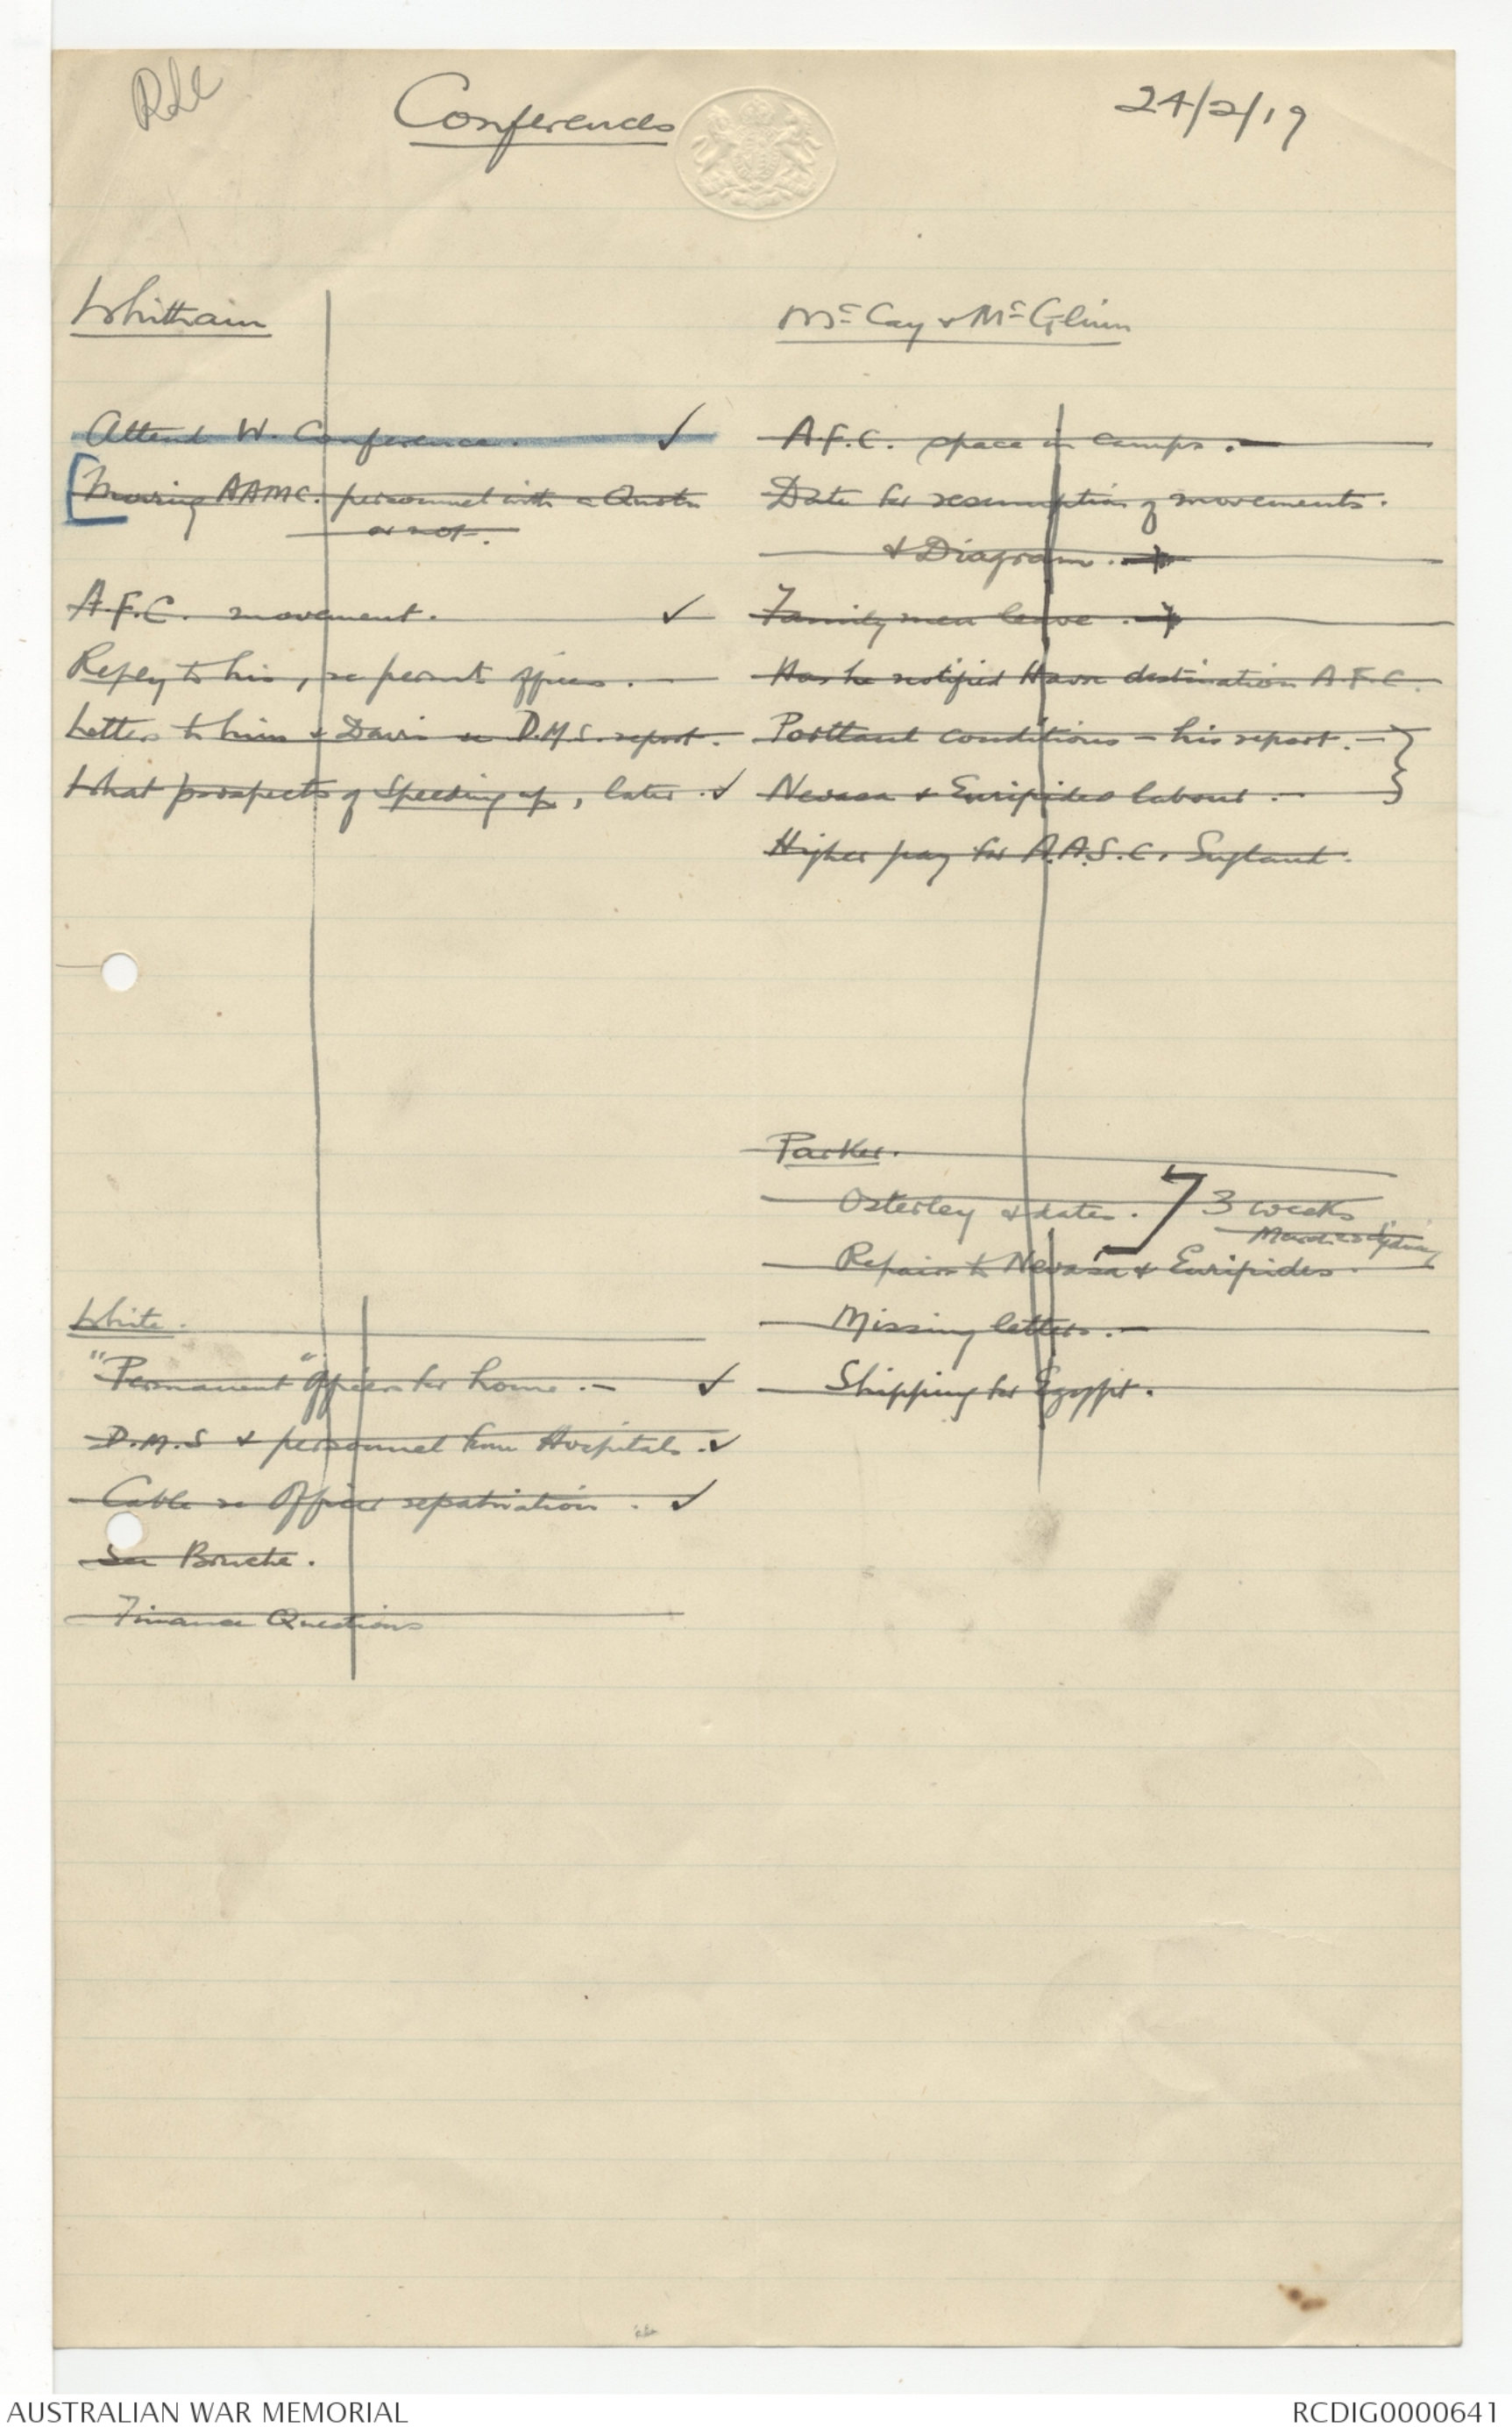 Conferences
24/2/19
Whitham
Attend W. Conference. ✓
Moving AAMC. personnel with a Quota
or not.
A.F.C. movement. ✓
Reply to him, re permt offices.
Letters to him & Davis re D.M.S. report.
What prospects of speeding up, later. ✓
White.
"Permanent" Officers for home. ✓
D.M.S & personnel from Hospitals. ✓
Cable re Officer repatriation. ✓
See Bruche.
Finance Questions
McCay & McGlinn
A.F.C. space in camps.
Date for resumption of movements.
& Diagram.
Family men leave.
Has he notified Havre destination A.F.C.
Portland conditions - his report.
Nevasa & Euripides labour.
Higher pay for A.A.S.C. England.
Parker.
Osterley & dates. 3 weeks
Repairs to Nevasa & Euripides.
Missing letters.
Shipping for Egypt.
AUSTRALIAN WAR MEMORIAL
RCDIG0000641